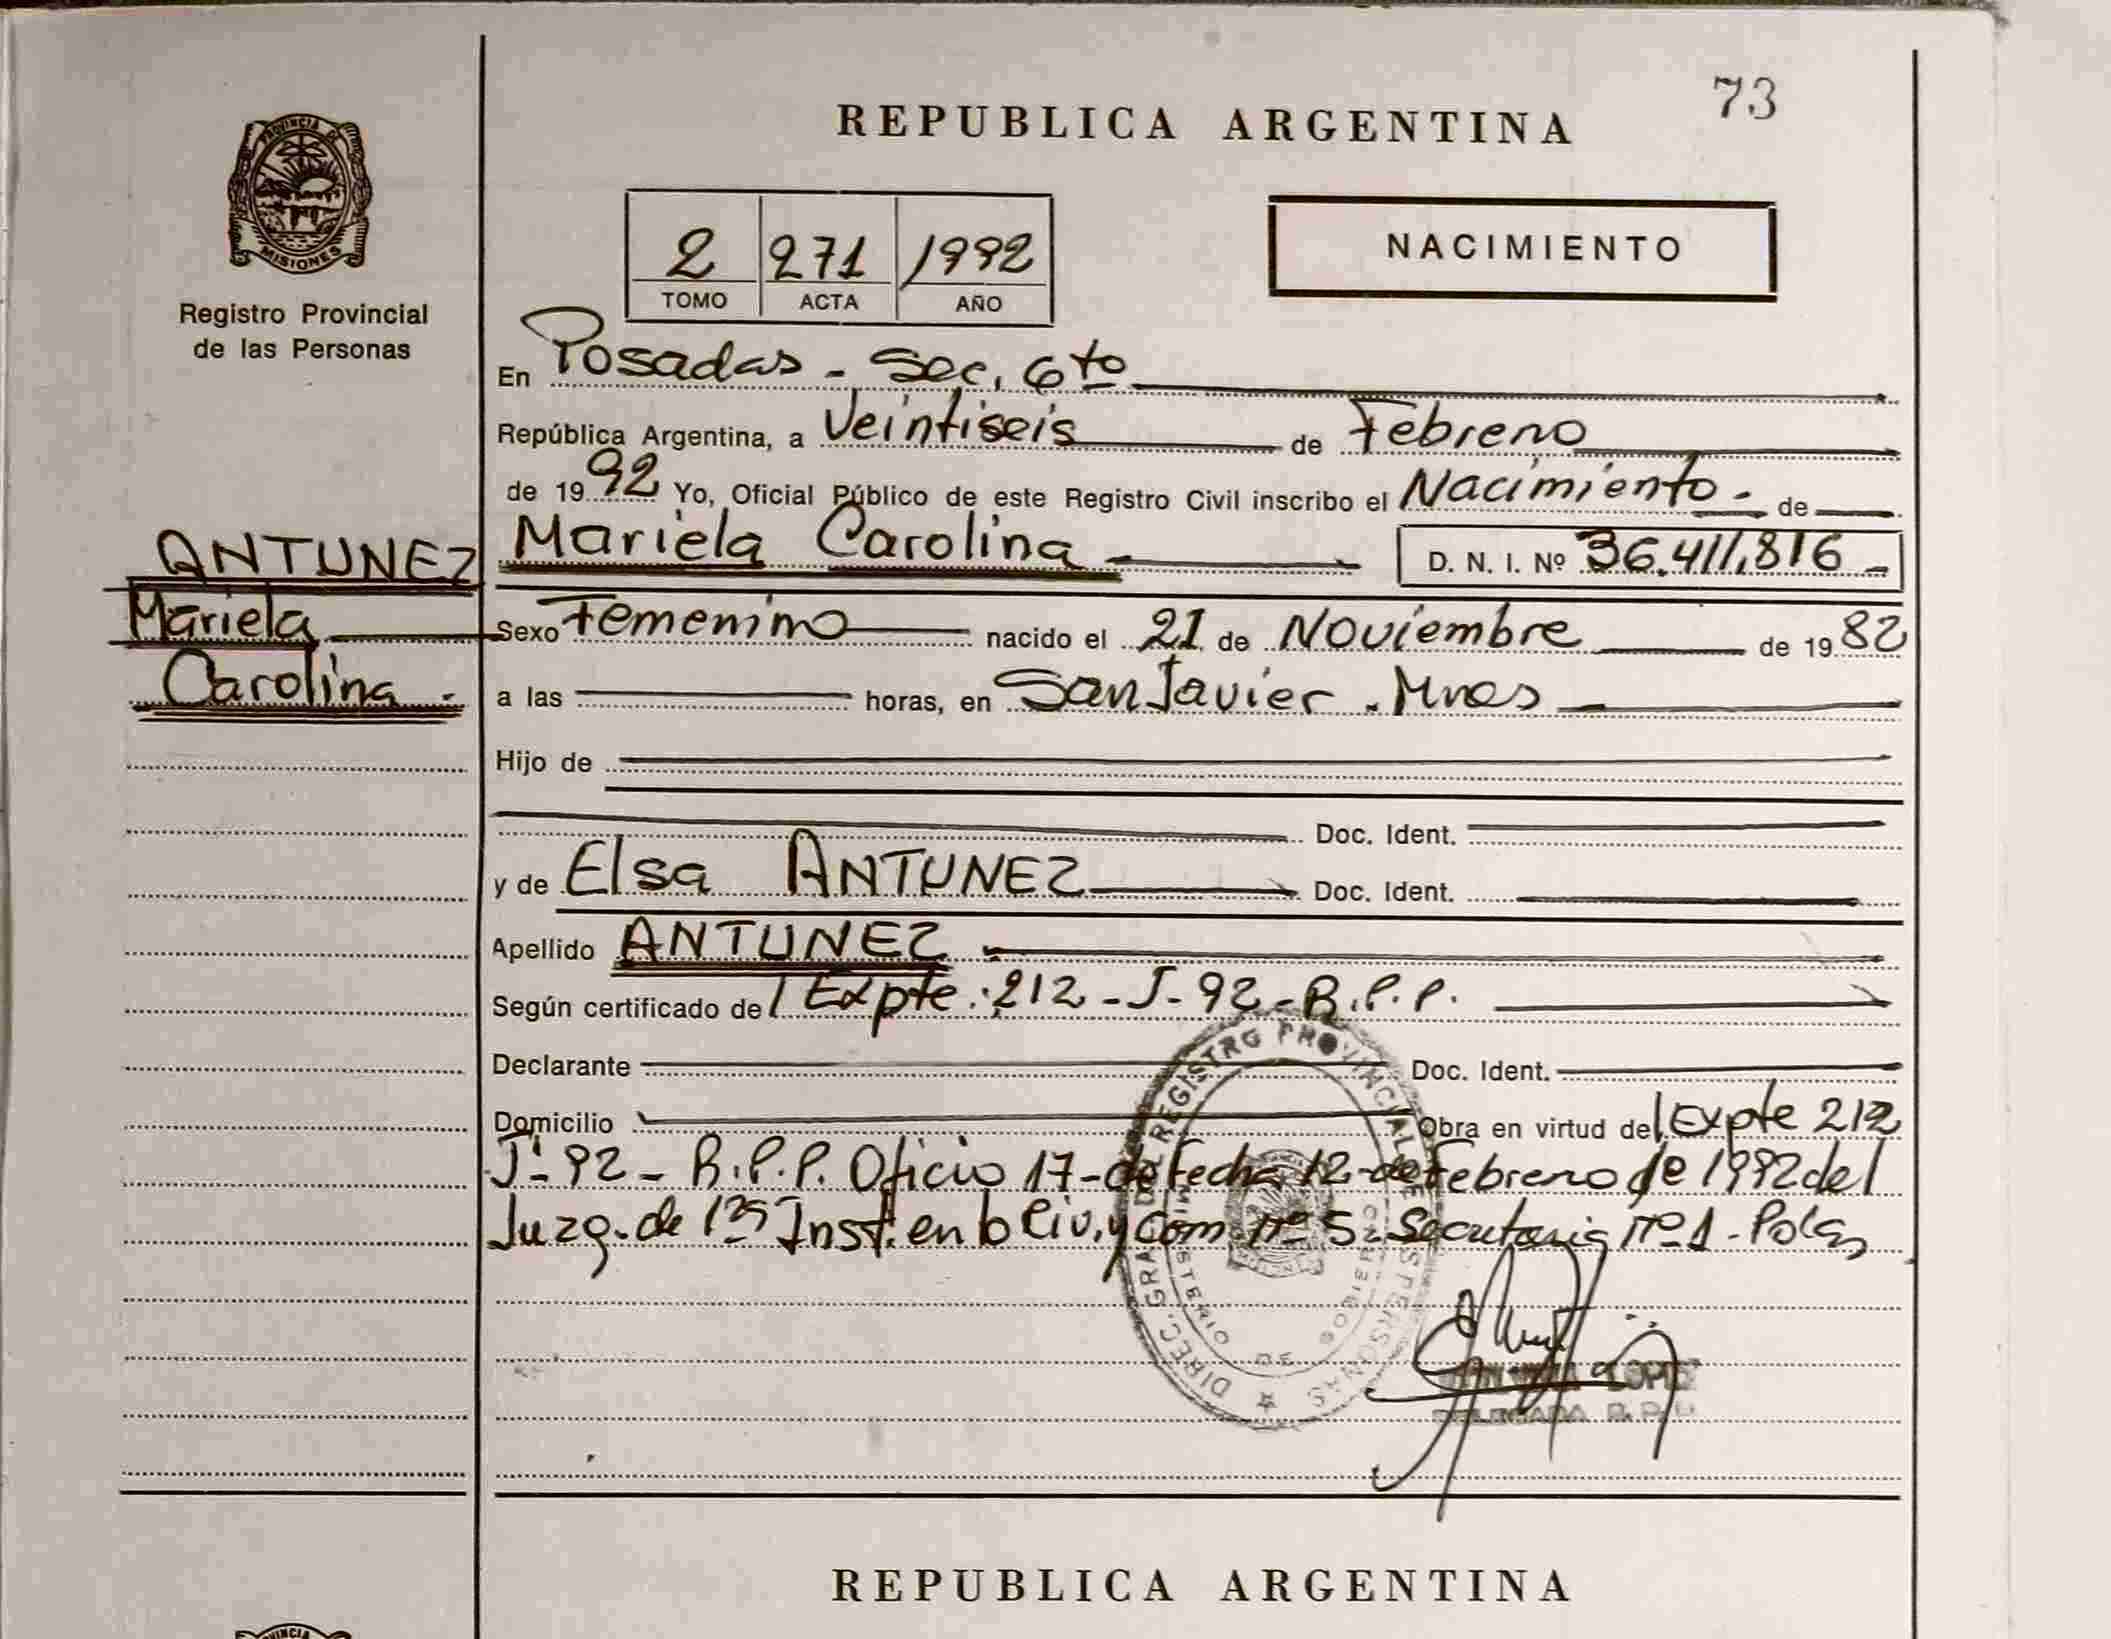 73
REPUBLICA ARGENTINA
PROVINCIA DE
MISIONES
Registro Provincial
de las Personas
2 271 1992
TOMO ACTA AÑO
NACIMIENTO
En Posadas - Sec. 6to
República Argentina, a Veintiseis de Febrero
de 1992 Yo, Oficial Público de este Registro Civil inscribo el Nacimiento - de
ANTUNEZ
Mariela
Carolina -
Mariela Carolina D. N. I. Nº 36.411.816 -
Sexo Femenino nacido el 21 de Noviembre de 1982
a las horas, en San Javier - Mnes
Hijo de
Doc. Ident.
y de Elsa ANTUNEZ Doc. Ident.
Apellido ANTUNEZ -
Según certificado de / Expte. 212 - J - 92 - R.P.P.
Declarante Doc. Ident.
Domicilio Obra en virtud del Expte 212
J - 92 - R.P.P. Oficio 17 - de fecha 12 - de Febrero de 1992 del
Juzg. de 1ra Inst. en lo Civ. y Com. nº 5 - Secretaria nº 1 -
DIREC. GRAL. DEL REGISTRO PROVINCIAL DE LAS PERSONAS
MINISTERIO DE GOBIERNO
LOPEZ
DELEGADA R. P.
REPUBLICA ARGENTINA